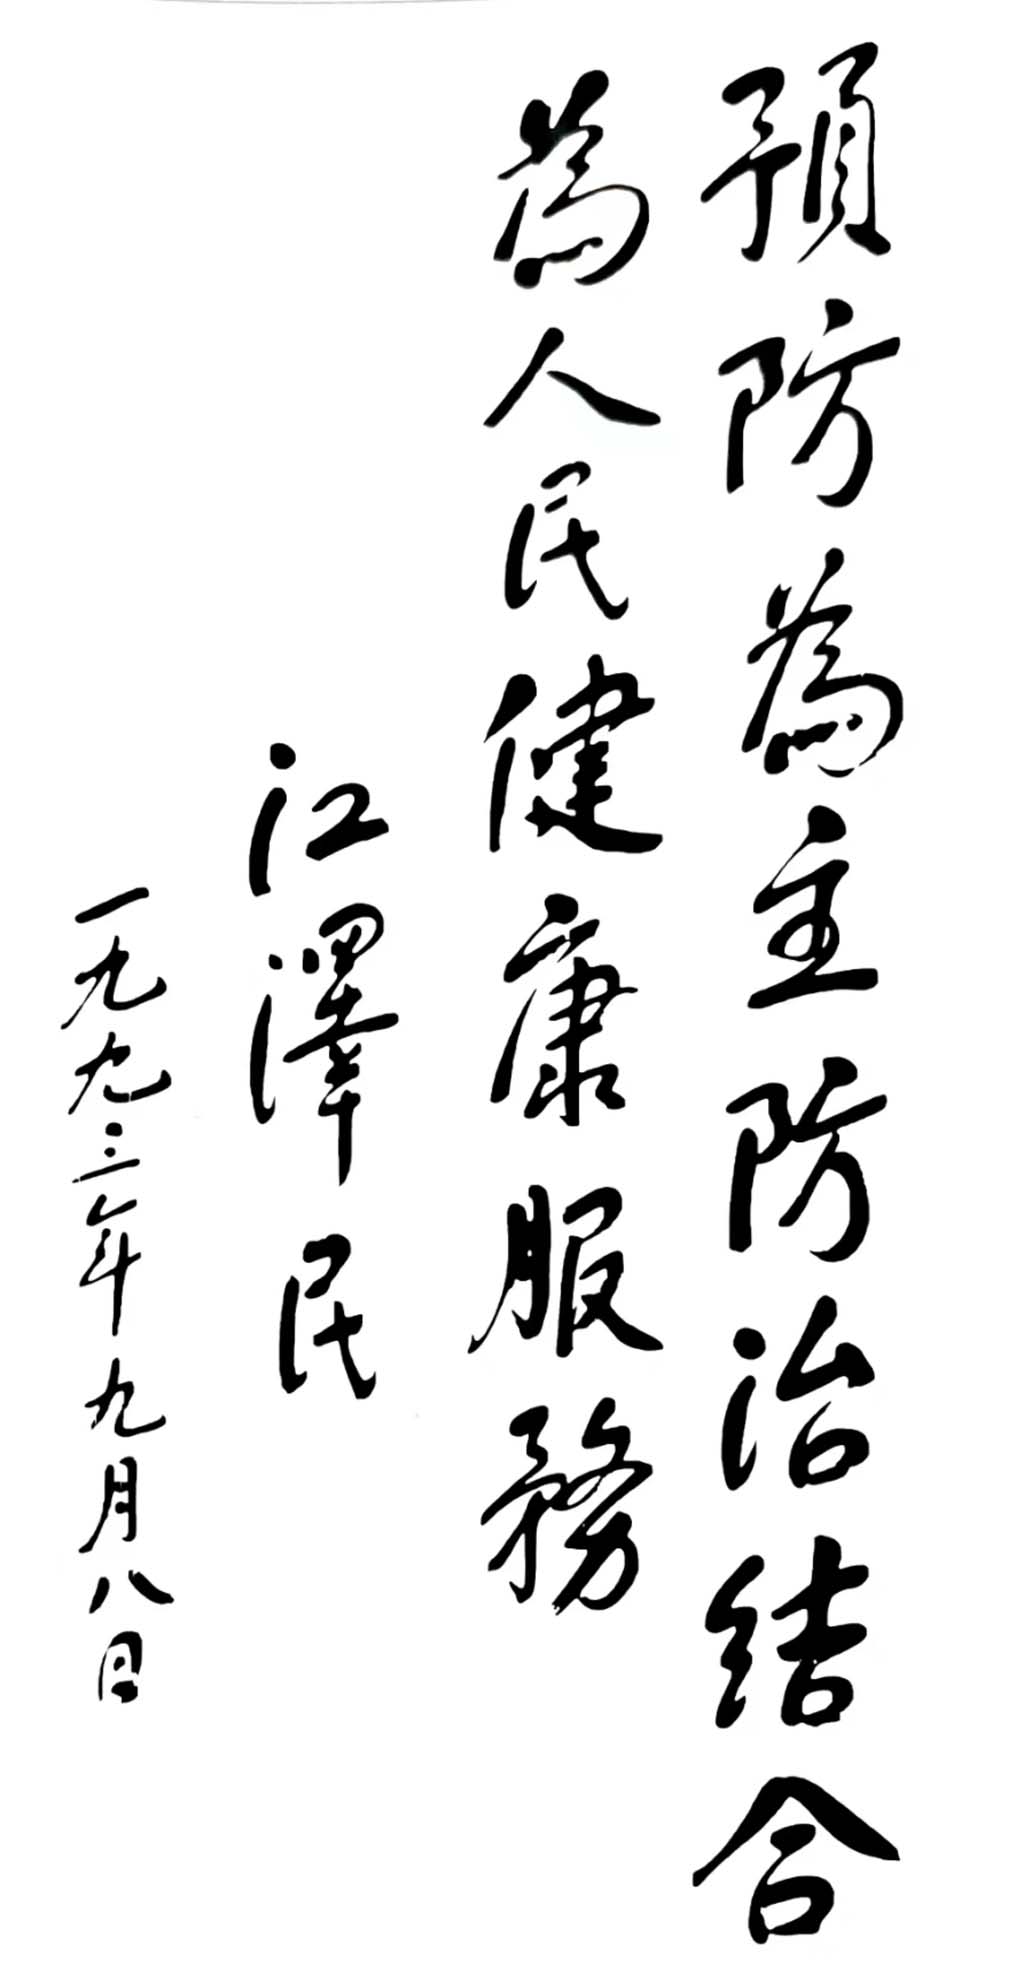 預防為主防治结合
為人民健康服務
江澤民
一九九三年九月八日